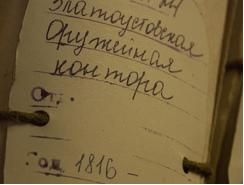 №1
Златоустовская
Оружейная
контора
Оп.
Год 1816 -